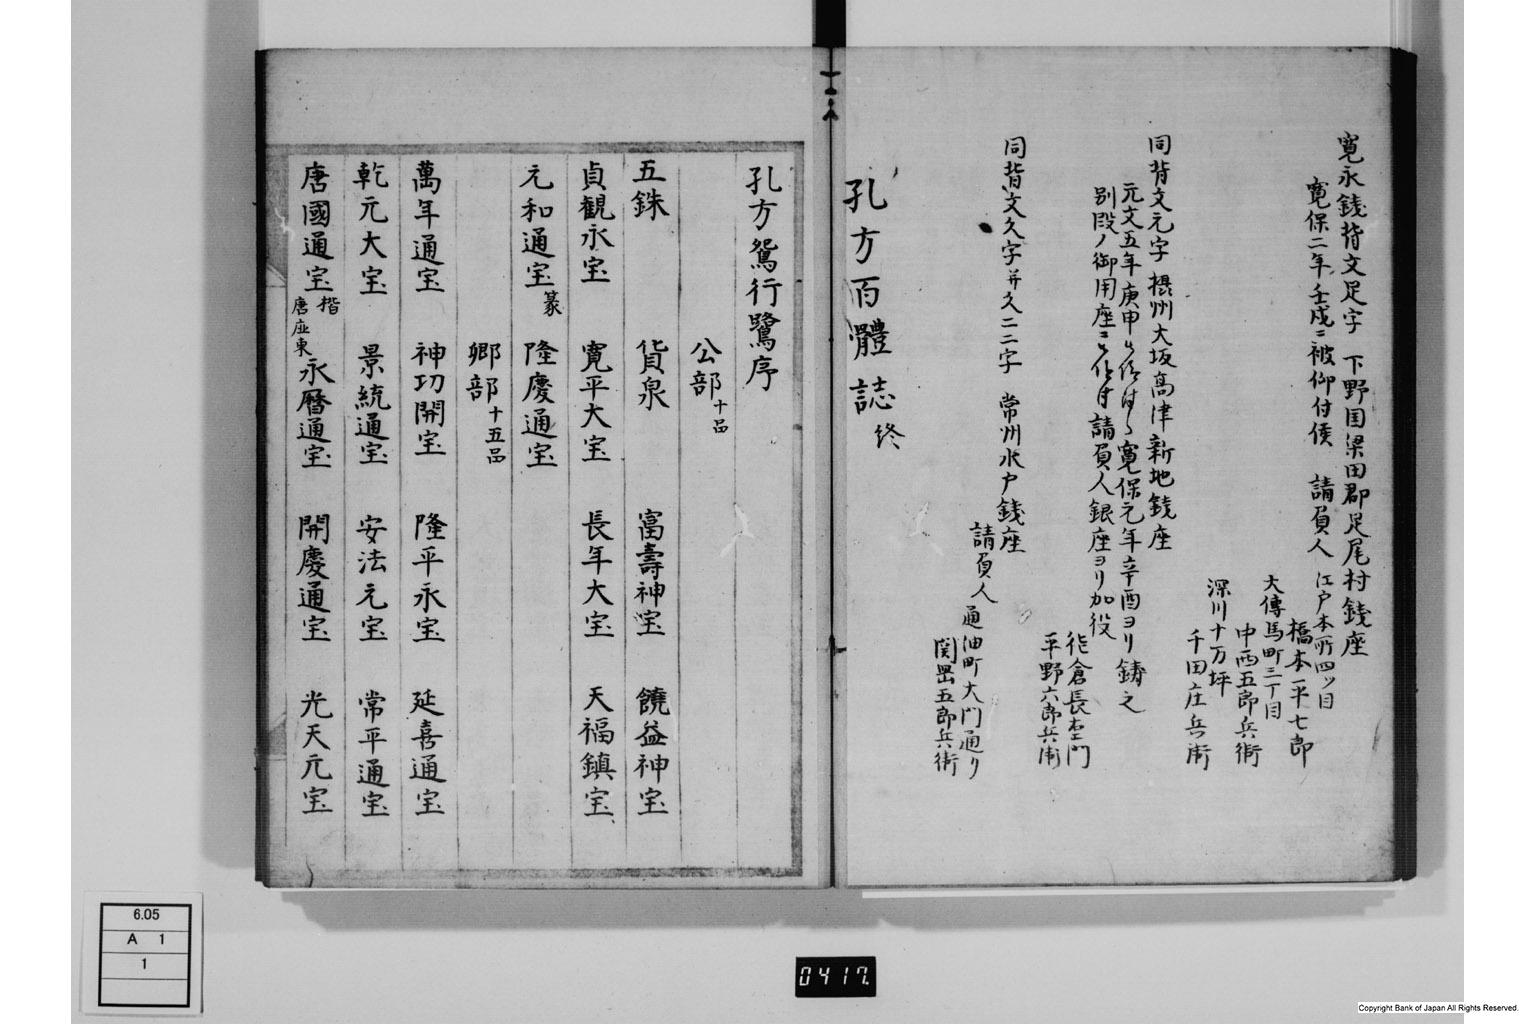 寛永錢背文足字 下野国梁田郡足尾村錢座
寛保二年壬戌ニ被仰付候 請負人 江戸本所四ツ目
橋本平七郎
大傳馬町三丁目
中西五郎兵衛
深川十万坪
千田庄兵衛
同背文元字 摂州大坂高津新地錢座
元文五年庚申 寛保元年辛酉ヨリ鋳之
別段ノ御用座ニ 請負人銀座ヨリ加役
倉長右衛門
平野六郎兵衛
同背文久字并久二二字 常州水戸錢座
請負人 通油町大門通り
関 五郎兵衛
孔方百體誌 終
孔方鴛行鷺序
公部 十品
五銖 貨泉 富壽神宝 饒益神宝
貞観永宝 寛平大宝 長年大宝 天福鎮宝
元和通宝 篆 隆慶通宝
郷部 十五品
萬年通宝 神功開宝 隆平永宝 延喜通宝
乾元大宝 景統通宝 安法元宝 常平通宝
唐國通宝 楷 唐 東 永暦通宝 開慶通宝 光天元宝
6.05
A 1
1
0417.
Copyright Bank of Japan All Rights Reserved.